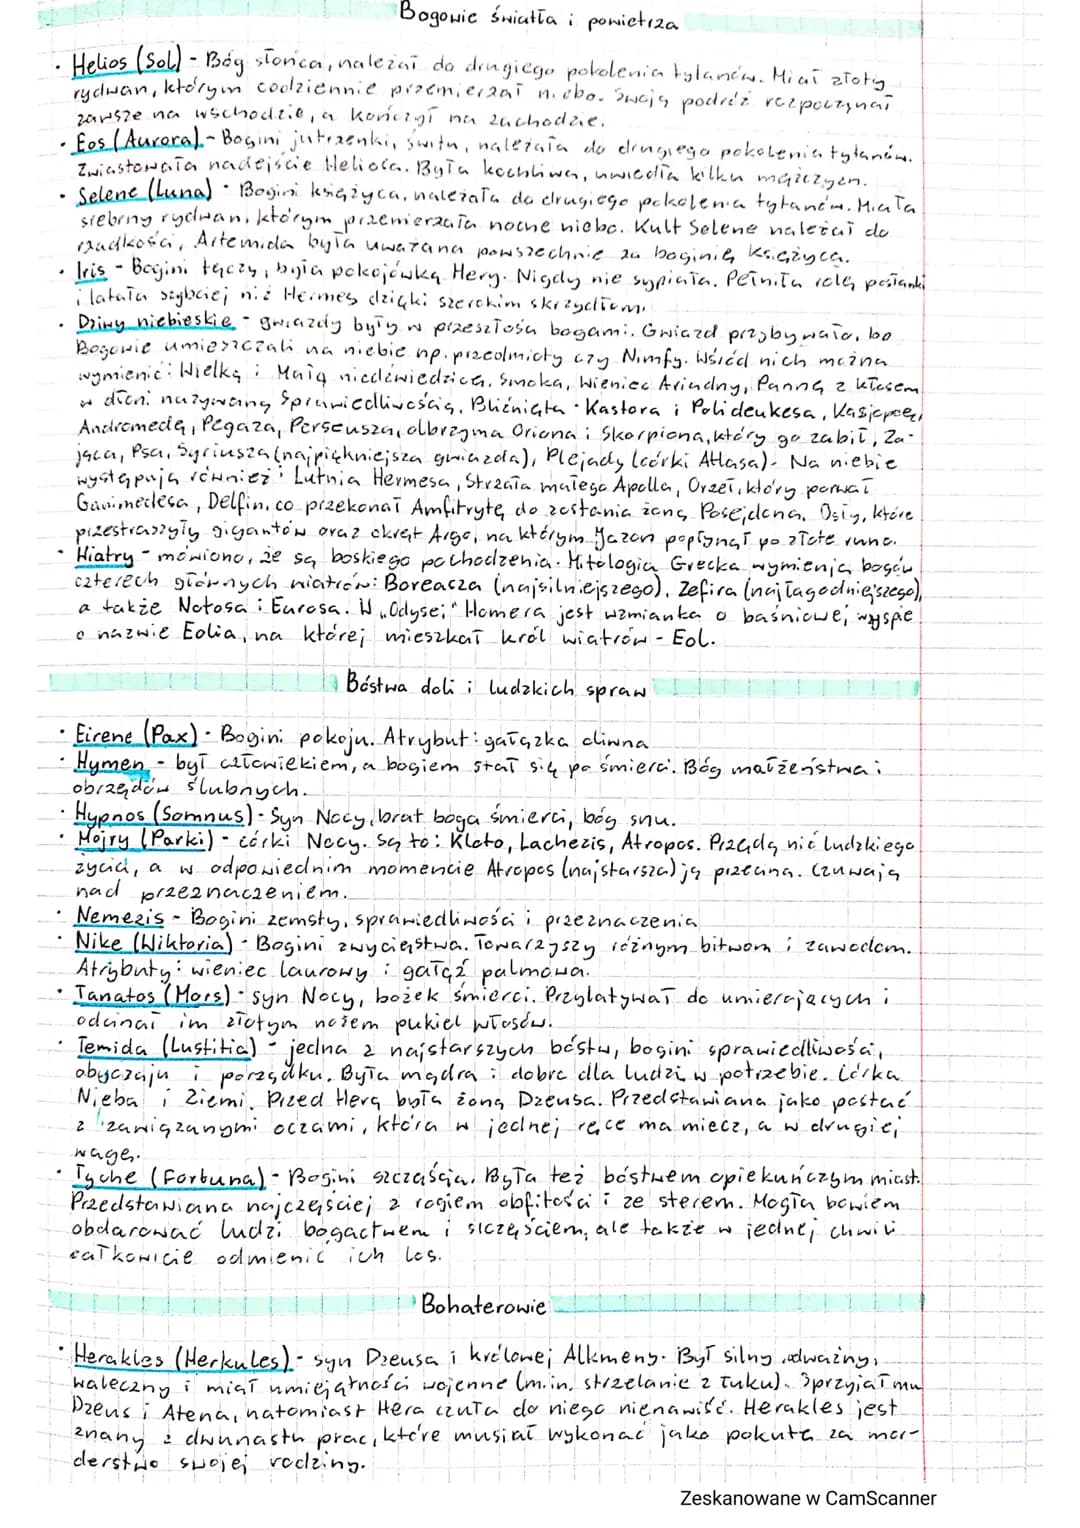 Bogowie światła i powietrza
• Helios (Sol) - Bóg słońca, należał do drugiego pokolenia tytanów. Miał złoty
rydwan, którym codziennie przemierzał niebo. Swoją podróż rozpoczynał
zawsze na wschodzie, a kończył na zachodzie.
• Eos (Aurora) - Bogini jutrzenki, świtu, należała do drugiego pokolenia tytanów.
Zwiastowała nadejście Heliosa. Była kochliwa, uwiedła kilku mężczyzn.
• Selene (Luna) - Bogini księżyca, należała do drugiego pokolenia tytanów. Miała
srebrny rydwan, którym przemierzała nocne niebo. Kult Selene należał do
rzadkości, Artemida była uważana powszechnie za boginię księżyca.
• Iris - Bogini tęczy, była pokojówką Hery. Nigdy nie sypiała. Pełniła rolę posłanki
i latała szybciej niż Hermes dzięki szerokim skrzydłom.
• Dziwy niebieskie - gwiazdy były w przeszłości bogami. Gwiazd przybywało, bo
Bogowie umieszczali na niebie np. przedmioty czy Nimfy. Wśród nich można
wymienić: Wielką i Małą niedźwiedzicę, Smoka, Wieniec Ariadny, Pannę z kłosem
w dłoni nazywaną Sprawiedliwością, Bliźnięta - Kastora i Polideukesa, Kasjopeę,
Andromedę, Pegaza, Perseusza, olbrzyma Oriona i Skorpiona, który go zabił, Za-
jąca, Psa, Syriusza (najpiękniejsza gwiazda), Plejady (córki Atlasa). Na niebie
występują również: Lutnia Hermesa, Strzała małego Apolla, Orzeł, który porwał
Ganimedesa, Delfin, co przekonał Amfitrytę do zostania żoną Posejdona, Osły, które
przestraszyły gigantów oraz okręt Argo, na którym Jazon popłynął po złote runo.
• Wiatry - mówiono, że są boskiego pochodzenia. Mitologia Grecka wymienia bogów
czterech głównych wiatrów: Boreasza (najsilniejszego), Zefira (najłagodniejszego),
a także Notosa i Eurosa. W „Odysei" Homera jest wzmianka o baśniowej wyspie
o nazwie Eolia, na której mieszkał król wiatrów - Eol.
Bóstwa doli i ludzkich spraw
• Eirene (Pax) - Bogini pokoju. Atrybut: gałązka oliwna
• Hymen - był człowiekiem, a bogiem stał się po śmierci. Bóg małżeństwa i
obrzędów ślubnych.
• Hypnos (Somnus) - Syn Nocy, brat boga śmierci, bóg snu.
• Mojry (Parki) - córki Nocy. Są to: Kloto, Lachezis, Atropos. Przędą nić ludzkiego
życia, a w odpowiednim momencie Atropos (najstarsza) ją przecina. Czuwają
nad przeznaczeniem.
• Nemezis - Bogini zemsty, sprawiedliwości i przeznaczenia
• Nike (Wiktoria) - Bogini zwycięstwa. Towarzyszy różnym bitwom i zawodom.
Atrybuty: wieniec laurowy i gałąź palmowa.
• Tanatos (Mors) - syn Nocy, bożek śmierci. Przylatywał do umierających i
odcinał im złotym nożem pukiel włosów.
• Temida (Lustitia) - jedna z najstarszych bóstw, bogini sprawiedliwości,
obyczaju i porządku. Była mądra i dobra dla ludzi w potrzebie. Córka
Nieba i Ziemi. Przed Herą była żoną Dzeusa. Przedstawiana jako postać
z zawiązanymi oczami, która w jednej ręce ma miecz, a w drugiej
wagę.
• Tyche (Fortuna) - Bogini szczęścia. Była też bóstwem opiekuńczym miast.
Przedstawiana najczęściej z rogiem obfitości i ze sterem. Mogła bowiem
obdarować ludzi bogactwem i szczęściem, ale także w jednej chwili
całkowicie odmienić ich los.
Bohaterowie
• Herakles (Herkules) - syn Dzeusa i królowej Alkmeny. Był silny, odważny,
waleczny i miał umiejętności wojenne (m.in. strzelanie z łuku). Sprzyjał mu
Dzeus i Atena, natomiast Hera czuła do niego nienawiść. Herakles jest
znany z dwunastu prac, które musiał wykonać jako pokutę za mor-
derstwo swojej rodziny.
Zeskanowane w CamScanner